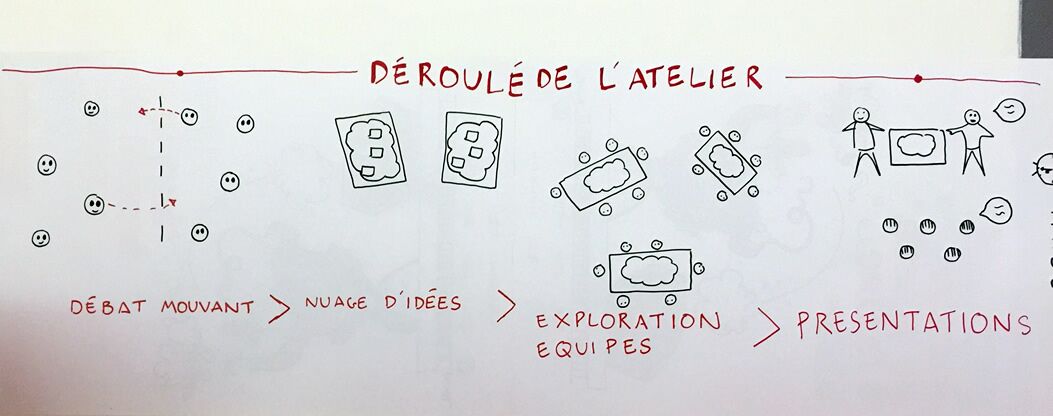 DÉROULÉ DE L'ATELIER
DÉBAT MOUVANT > NUAGE D'IDÉES > EXPLORATION > PRESENTATIONS
EQUIPES